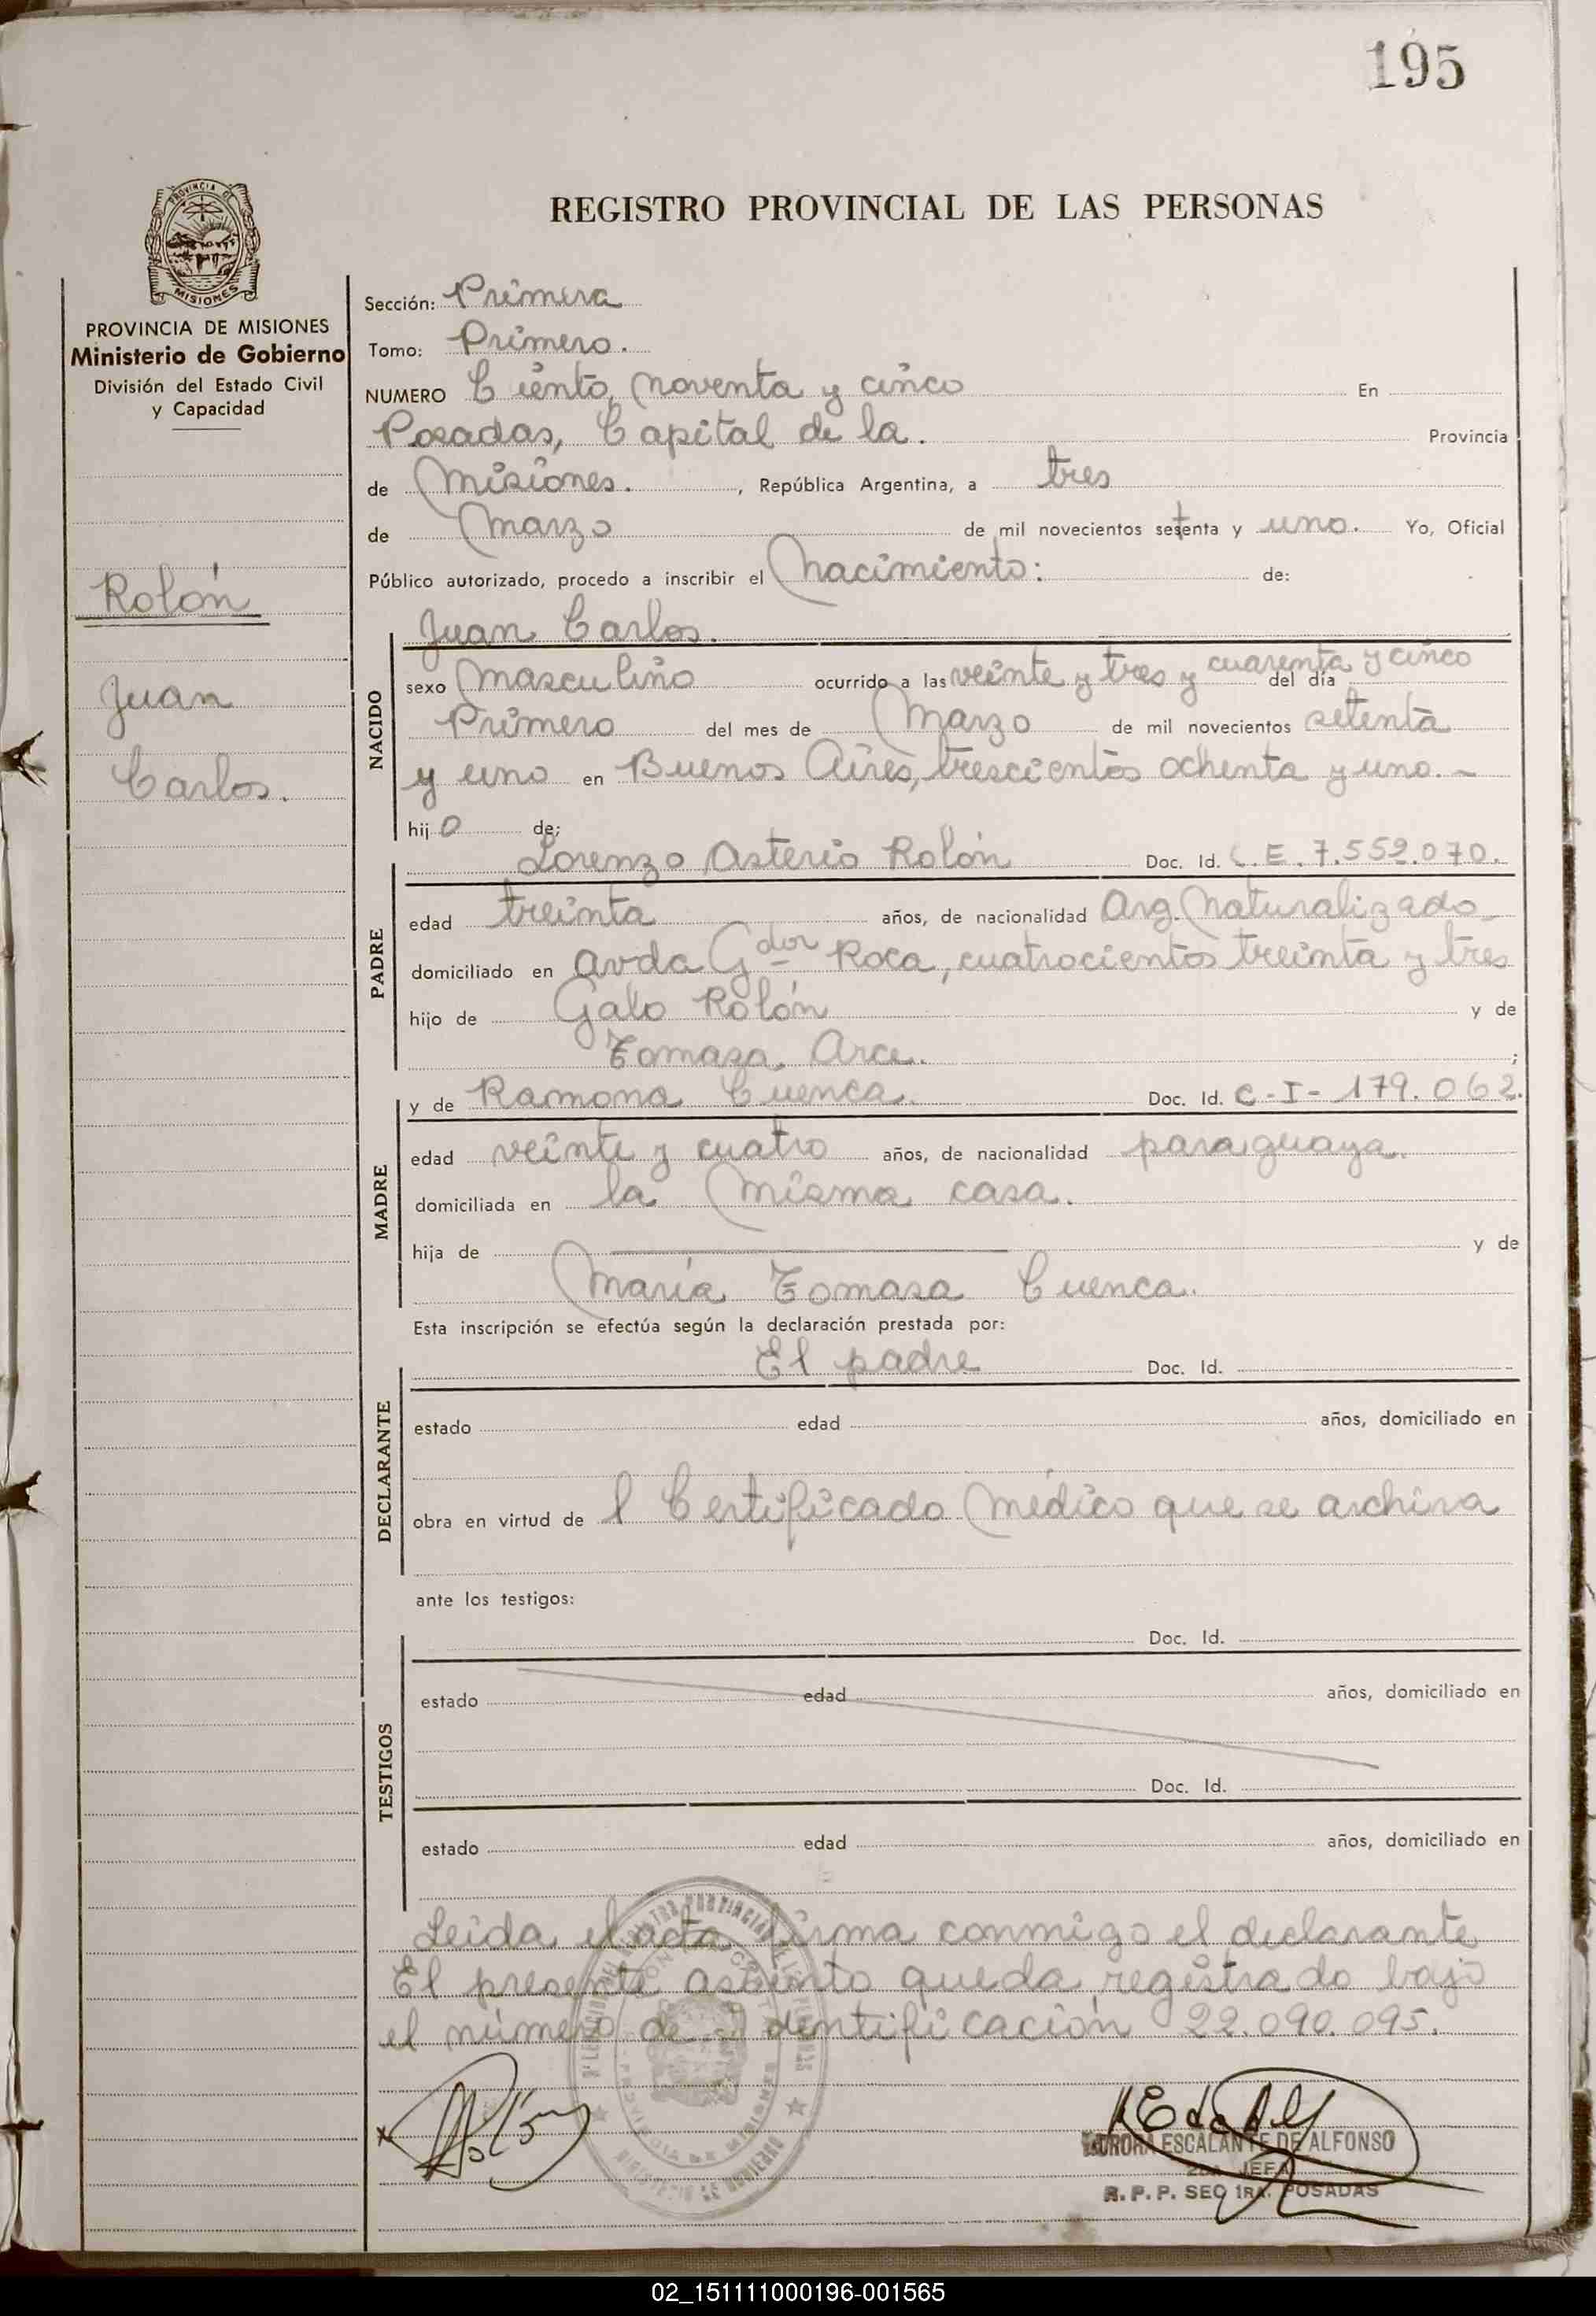 195
REGISTRO PROVINCIAL DE LAS PERSONAS
PROVINCIA DE
MISIONES
PROVINCIA DE MISIONES
Ministerio de Gobierno
División del Estado Civil
y Capacidad
Rolón
Juan
Carlos.
Sección: Primera
Tomo: Primero.
NUMERO Ciento, noventa y cinco En
Posadas, Capital de la. Provincia
de Misiones. , República Argentina, a tres
de Marzo de mil novecientos setenta y uno. Yo, Oficial
Público autorizado, procedo a inscribir el Nacimiento: de:
Juan Carlos.
NACIDO
sexo Masculino ocurrido a las veinte y tres y cuarenta y cinco del día
Primero del mes de Marzo de mil novecientos setenta
y uno en Buenos Aires, trescientos ochenta y uno. -
hijo de:
Lorenzo Asterio Rolón Doc. Id. L.E. 7.559.070.
PADRE
edad treinta años, de nacionalidad Arg. Naturalizado
domiciliado en Avda Gdor Roca, cuatrocientos treinta y tres
hijo de Galo Rolón y de
Tomasa Arce. ;
y de Ramona Cuenca. Doc. Id. C-I-179.062.
MADRE
edad veinte y cuatro años, de nacionalidad paraguaya.
domiciliada en la misma casa.
hija de y de
María Tomasa Cuenca.
Esta inscripción se efectúa según la declaración prestada por:
El padre Doc. Id.
DECLARANTE
estado edad años, domiciliado en
obra en virtud de l Certificado Médico que se archiva
ante los testigos:
Doc. Id.
TESTIGOS
estado edad años, domiciliado en
Doc. Id.
estado edad años, domiciliado en
Leída el acta firma conmigo el declarante
El presente asiento queda registrado bajo
el número de identificación 22.090.095.
x Rolón
AURORA ESCALANTE DE ALFONSO
2DA JEFA
R.P.P. SEC 1RA. POSADAS
02_151111000196-001565